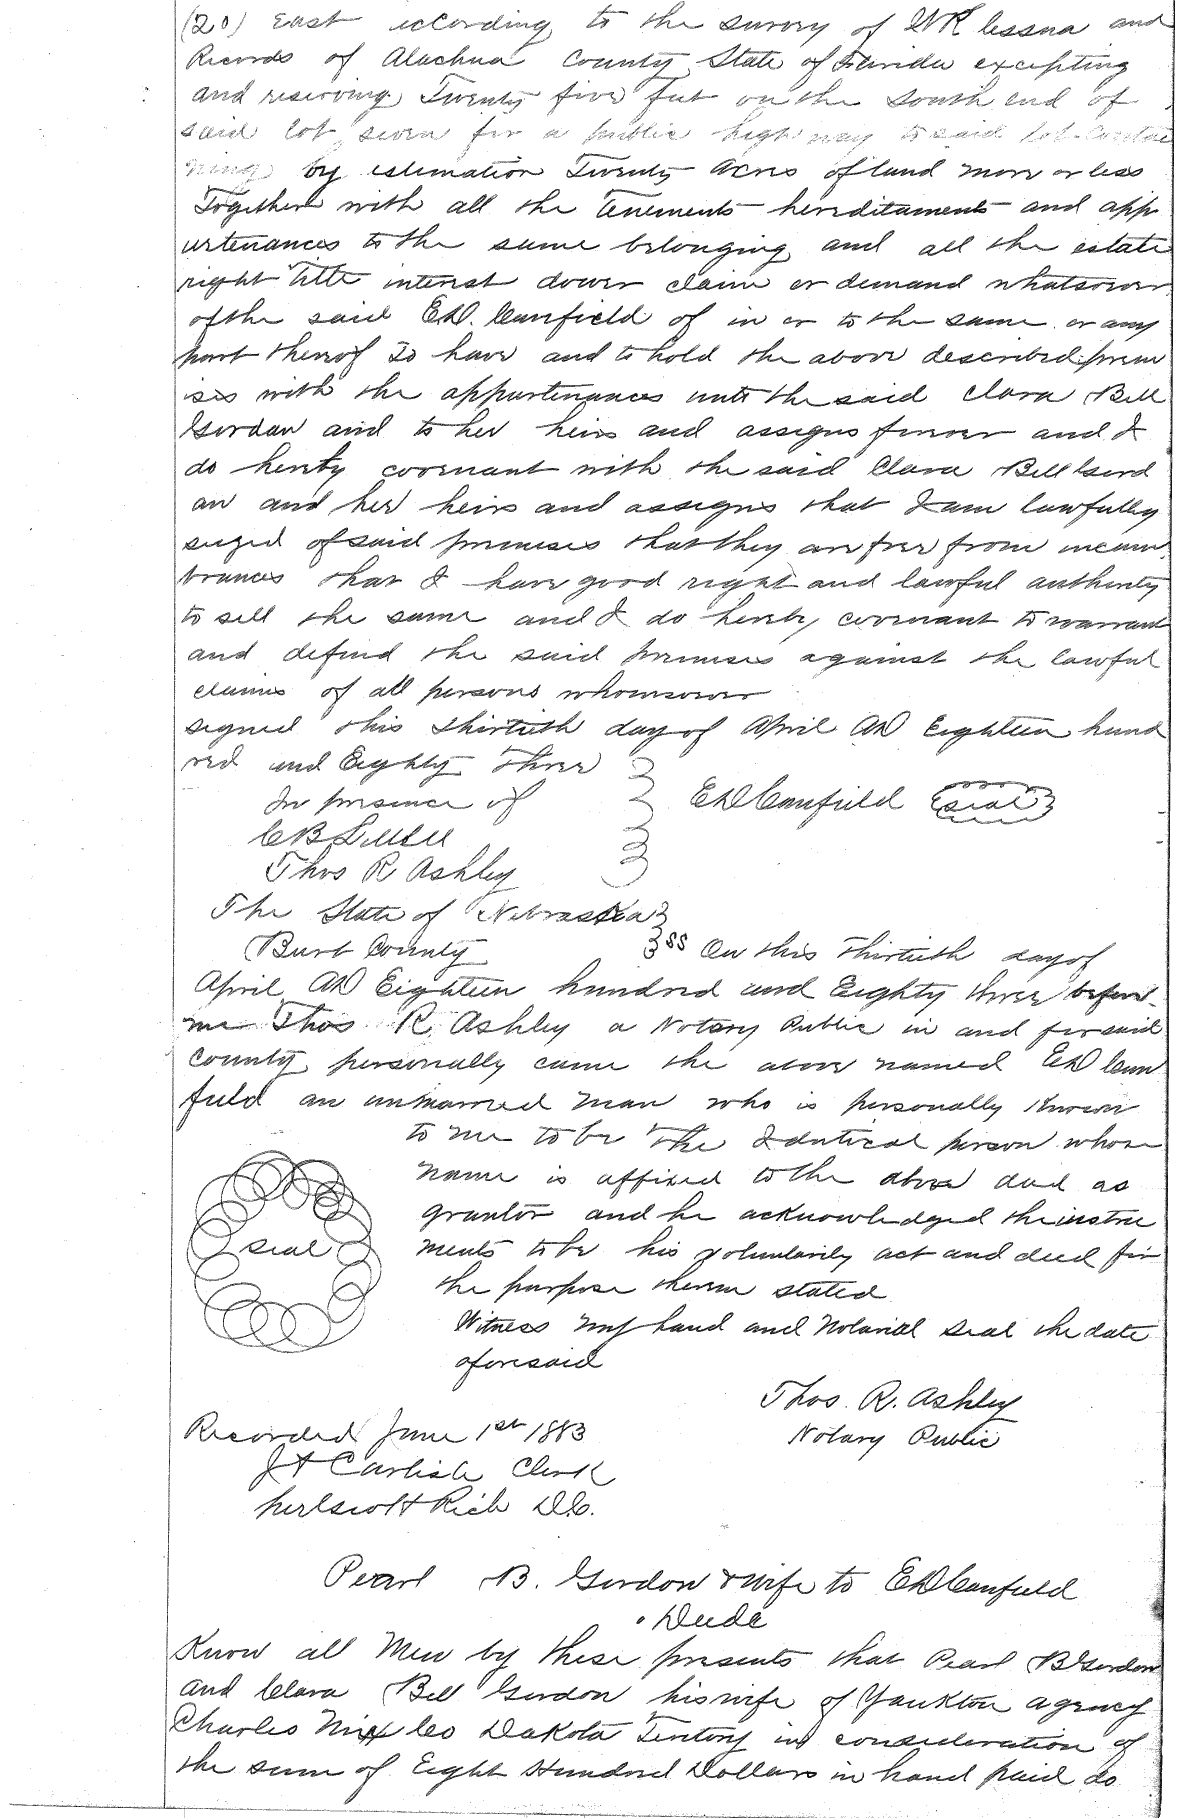 (20) East according to the survey of W R Lessna and
Records of Alachua County State of Florida excepting
and reserving Twenty five feet on the South end of
said lot seven for a public high way to said lot contai
ning by estimation Twenty Acres of land more or less
Together with all the Tenements hereditaments and app
urtenances to the same belonging and all the estate
right Title interest dower claim or demand whatsoever
of the said E D. Canfield of in or to the same or any
part thereof To have and to hold the above described prem
ises with the appurtenances unto the said Clara Bell
Gordon and to her heirs and assigns forever and I
do hereby covenant with the said Clara Bell Gord
on and her heirs and assigns that I am lawfully
seized of said premises that they are free from incum
brances that I have good right and lawful authority
to sell the same and I do hereby covenant to warrant
and defend the said premises against the lawful
claims of all persons whomsoever
signed this thirtieth day of April AD Eighteen hund
red and Eighty Three
In presence of E D Canfield (seal)
C B
Thos R Ashley
The State of Nebraska
Burt County SS On this Thirtieth day of
April AD Eighteen hundred and Eighty three before
me Thos R Ashley a Notary Public in and for said
County personally came the above named E D Can
field an unmarried man who is personally known
to me to be the Identical person whose
name is affixed to the above deed as
grantor and he acknowledged the instru
ments to be his voluntarily act and deed for
seal
the purpose therein stated
Witness my hand and Notarial seal the date
aforesaid
Thos. R. Ashley
Notary Public
Recorded June 1st 1883
J A Carlisle Clerk
Rich D.C.
Pearl B. Gordon & wife to E D Canfield
Deede
Know all Men by these presents that Pearl B Gordon
and Clara Bell Gordon his wife of Yankton agency
Charles Mix Co Dakota Teritory in consideration of
the sum of Eight Hundred Dollars in hand paid do